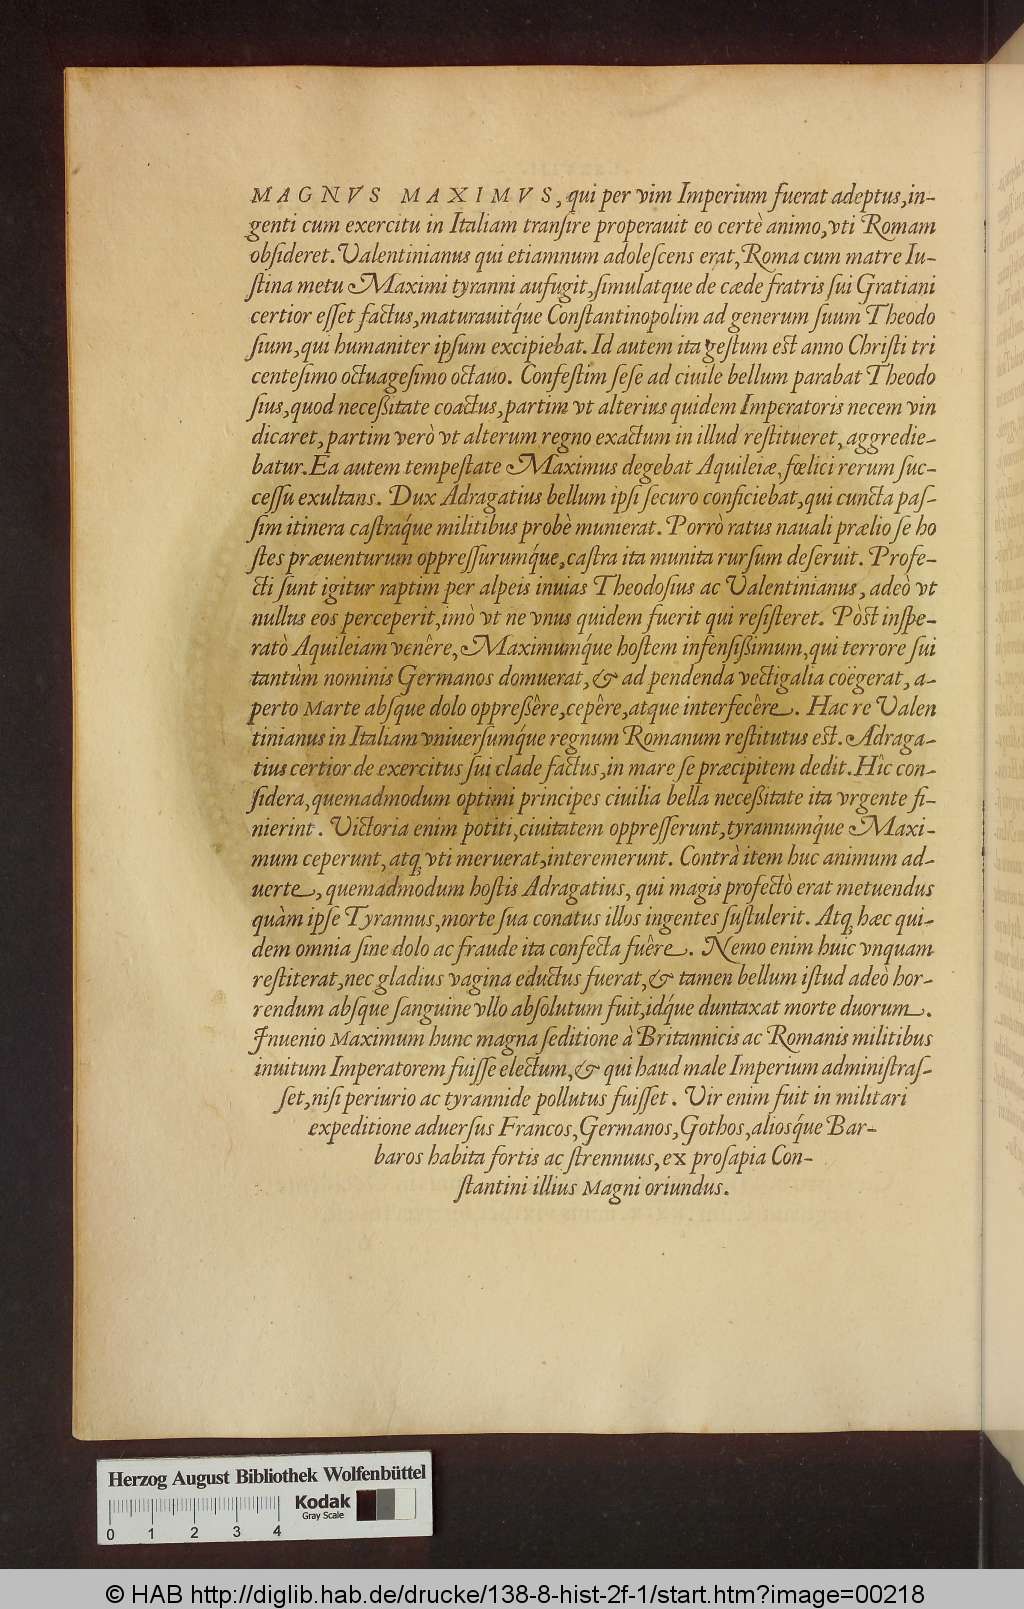 MAGNVS MAXIMVS, qui per vim Imperium fuerat adeptus, in-
genti cum exercitu in Italiam transire properauit eo certè animo, vti Romam
obsideret. Valentinianus qui etiamnum adolescens erat, Roma cum matre Iu-
stina metu Maximi tyranni aufugit, simulatque de cæde fratris sui Gratiani
certior esset factus, maturauitq́ue Constantinopolim ad generum suum Theodo
sium, qui humaniter ipsum excipiebat. Id autem ita gestum est anno Christi tri
centesimo octuagesimo octauo. Confestim sese ad ciuile bellum parabat Theodo
sius, quod neceßitate coactus, partim vt alterius quidem Imperatoris necem vin
dicaret, partim verò vt alterum regno exactum in illud restitueret, aggredie-
batur. Ea autem tempestate Maximus degebat Aquileiæ, fœlici rerum suc-
cessu exultans. Dux Adragatius bellum ipsi securo conficiebat, qui cuncta pas-
sim itinera castraq́ue militibus probè munierat. Porrò ratus nauali prælio se ho
stes præuenturum oppressurumq́ue, castra ita munita rursum deseruit. Profe-
cti sunt igitur raptim per alpeis inuias Theodosius ac Valentinianus, adeò vt
nullus eos perceperit, imò vt ne vnus quidem fuerit qui resisteret. Pòst inspe-
ratò Aquileiam venêre, Maximumq́ue hostem infensißimum, qui terrore sui
tantùm nominis Germanos domuerat, & ad pendenda vectigalia coëgerat, a-
perto Marte absque dolo oppreßêre, cepêre, atque interfecêre. Hac re Valen
tinianus in Italiam vniuersumq́ue regnum Romanum restitutus est. Adraga-
tius certior de exercitus sui clade factus, in mare se præcipitem dedit. Hîc con-
sidera, quemadmodum optimi principes ciuilia bella neceßitate ita vrgente fi-
nierint. Victoria enim potiti, ciuitatem oppresserunt, tyrannumq́ue Maxi-
mum ceperunt, atq; vti meruerat, interemerunt. Contrà item huc animum ad-
uerte, quemadmodum hostis Adragatius, qui magis profectò erat metuendus
quàm ipse Tyrannus, morte sua conatus illos ingentes sustulerit. Atq; hæc qui-
dem omnia sine dolo ac fraude ita confecta fuêre. Nemo enim huic vnquam
restiterat, nec gladius vagina eductus fuerat, & tamen bellum istud adeò hor-
rendum absque sanguine vllo absolutum fuit, idq́ue duntaxat morte duorum.
Inuenio Maximum hunc magna seditione à Britannicis ac Romanis militibus
inuitum Imperatorem fuisse electum, & qui haud male Imperium administras-
set, nisi periurio ac tyrannide pollutus fuisset. Vir enim fuit in militari
expeditione aduersus Francos, Germanos, Gothos, aliosq́ue Bar-
baros habita fortis ac strennuus, ex prosapia Con-
stantini illius Magni oriundus.
Herzog August Bibliothek Wolfenbüttel
Kodak
Gray Scale
0 1 2 3 4
© HAB http://diglib.hab.de/drucke/138-8-hist-2f-1/start.htm?image=00218